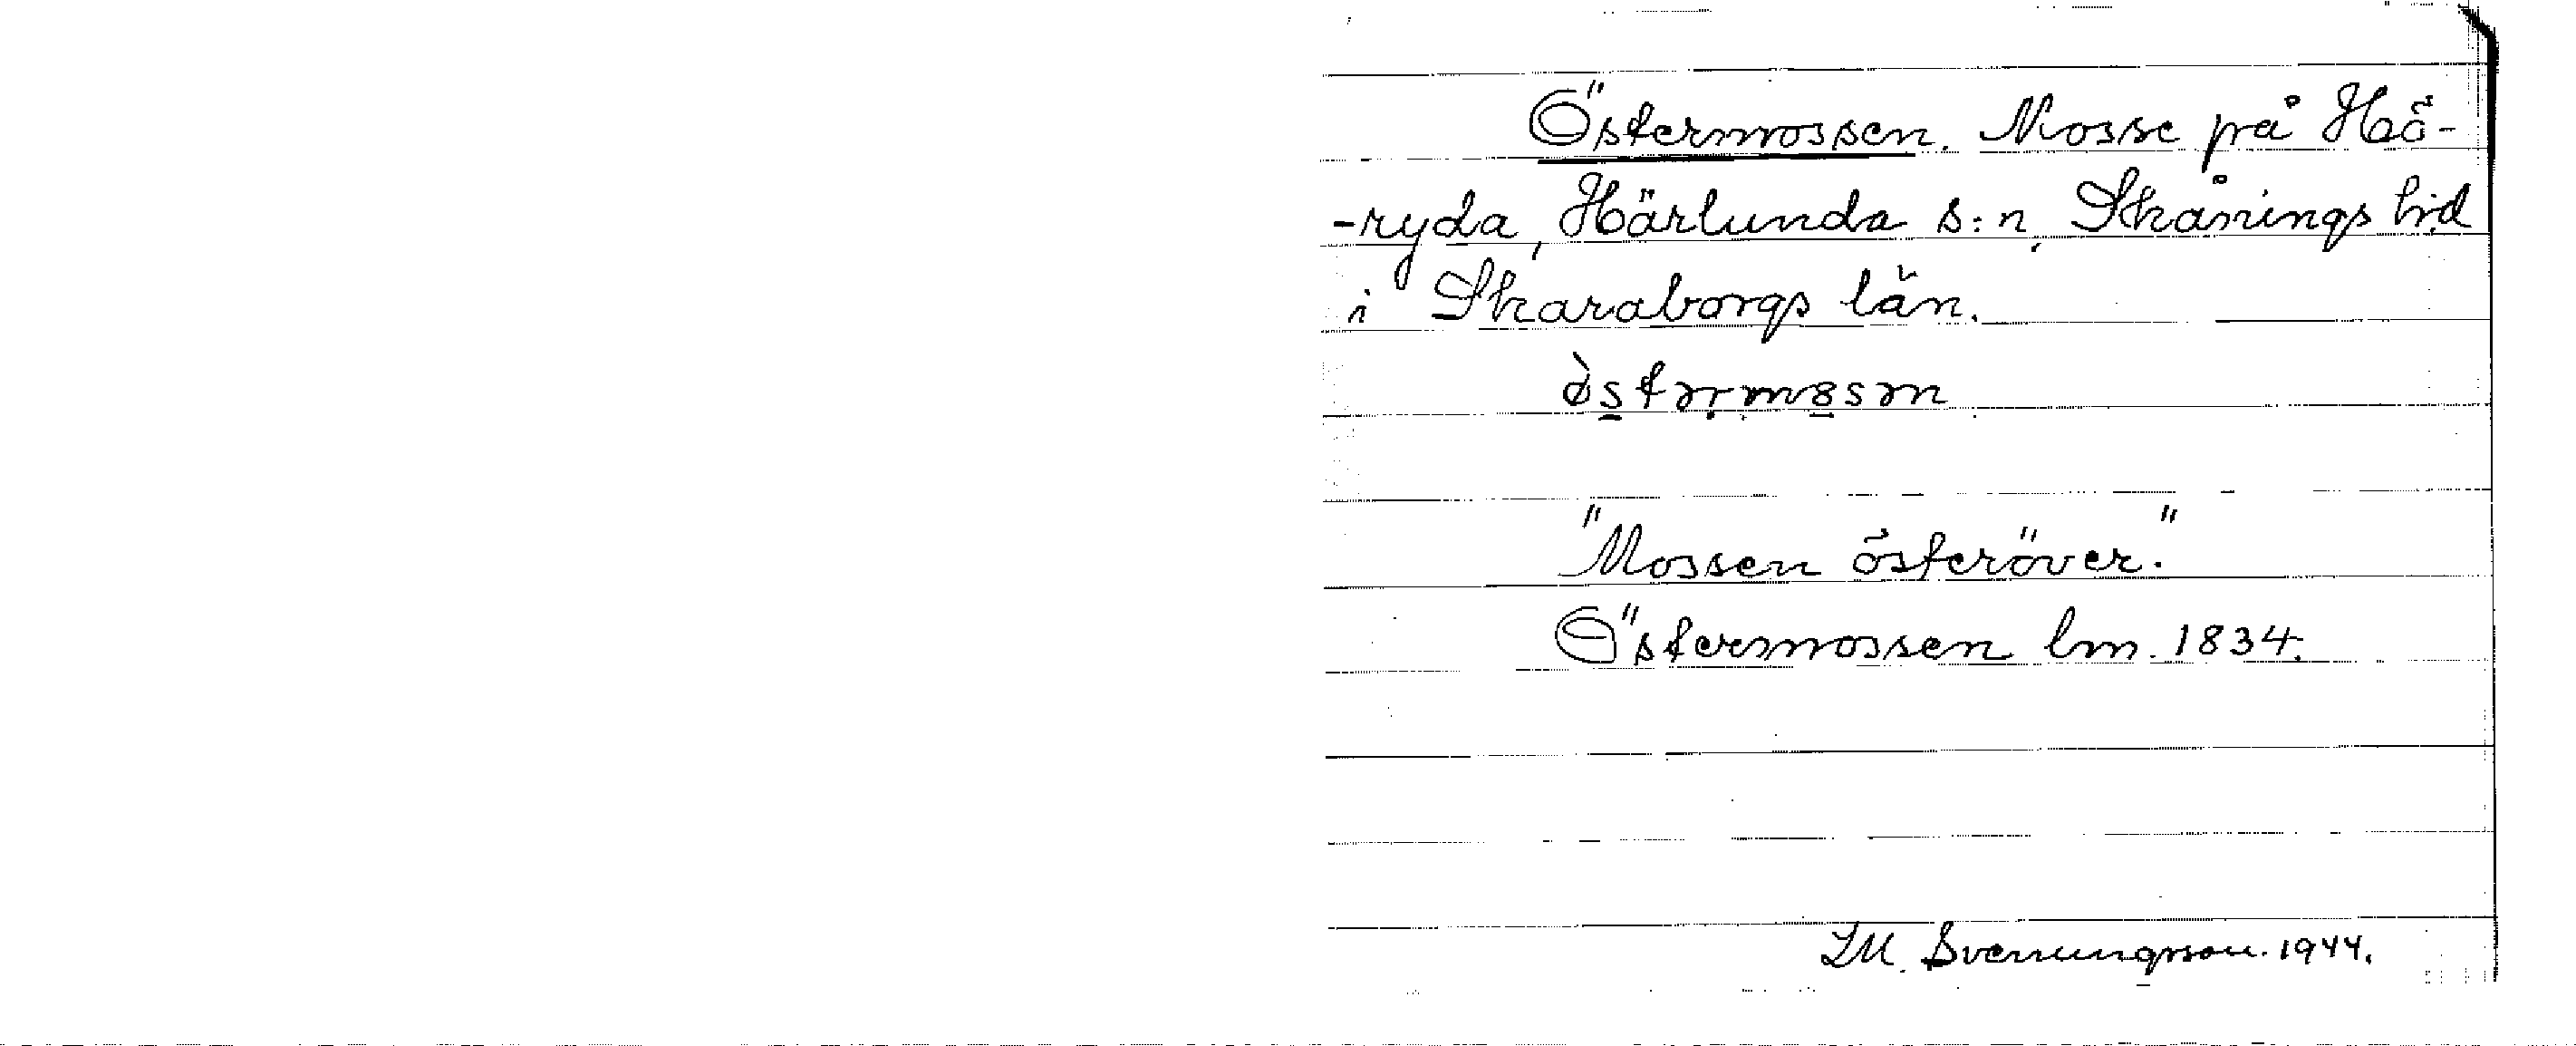 Östermossen. Mosse på Hö-
-ryda, Härlunda s:n, Skånings hd
i Skaraborgs län.
"Mossen österöver."
Östermossen lm. 1834.
LM. Svenungsson. 1944.